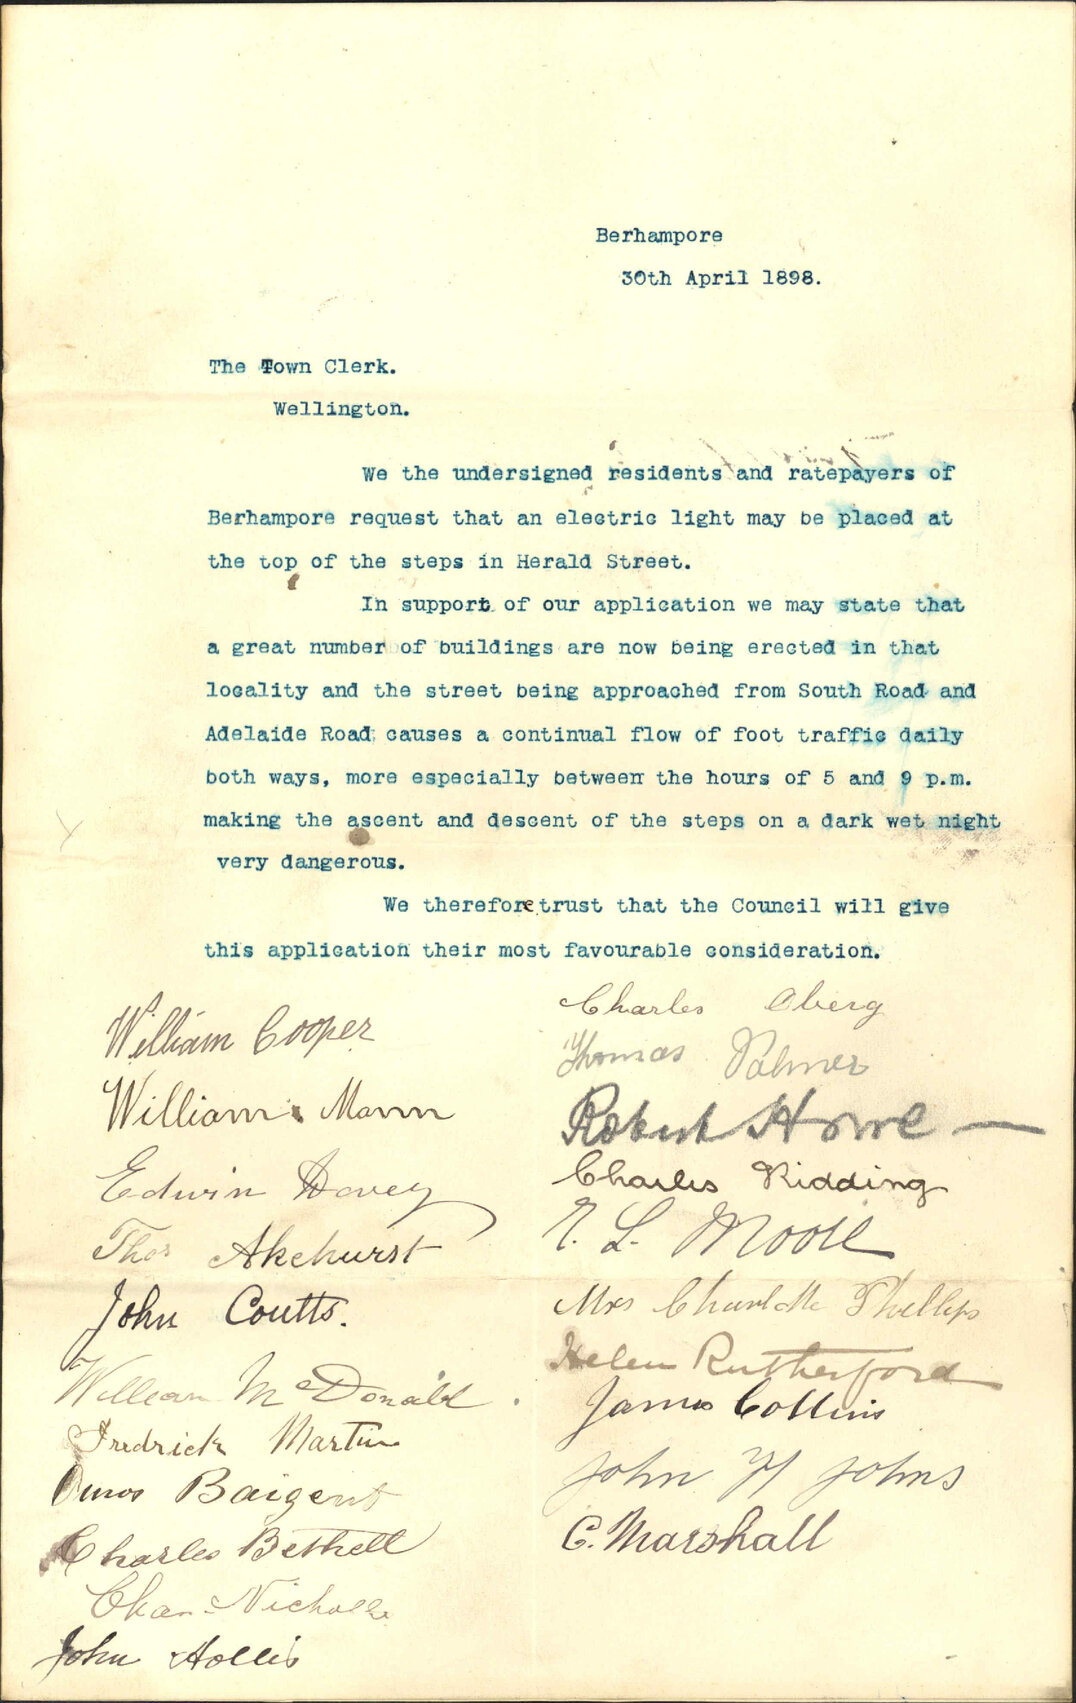 Berhampore
30th April 1898.
The Town Clerk.
Wellington.
We the undersigned residents and ratepayers of
Berhampore request that an electric light may be placed at
the top of the steps in Herald Street.
In support of our application we may state that
a great number of buildings are now being erected in that
locality and the street being approached from South Road and
Adelaide Road causes a continual flow of foot traffic daily
both ways, more especially between the hours of 5 and 9 p.m.
making the ascent and descent of the steps on a dark wet night
very dangerous.
We therefore trust that the Council will give
this application their most favourable consideration.
William Cooper
William Mann
Edwin Davey
Thos Akehurst
John Coutts.
William McDonald
Fredrick Martin
Amos Baigent
Charles Bethell
Chas Nicholls
John Hollis
Charles Oberg
Thomas Palmer
Robert Howe
Charles Ridding
L. Moore
Mrs Charlotte Phillips
Helen Rutherford
James Collins
John H Johns
C. Marshall